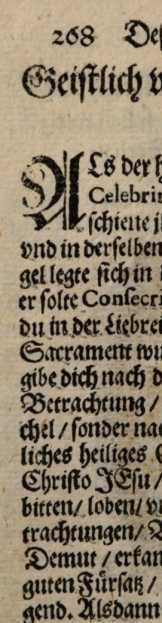 268 Des
Geistlich v
ALs der h
Celebrir
schiene s
vnd in derselben
gel legte sich in
er solte Consecr
du in der Liebrei
Sacrament wu
gibe dich nach d
Betrachtung /
chel / sonder na
liches heiliges
Christo JEsu /
bitten / loben / v
trachtungen /
Demut / erkan
guten Fürsatz /
gend. Alsdann